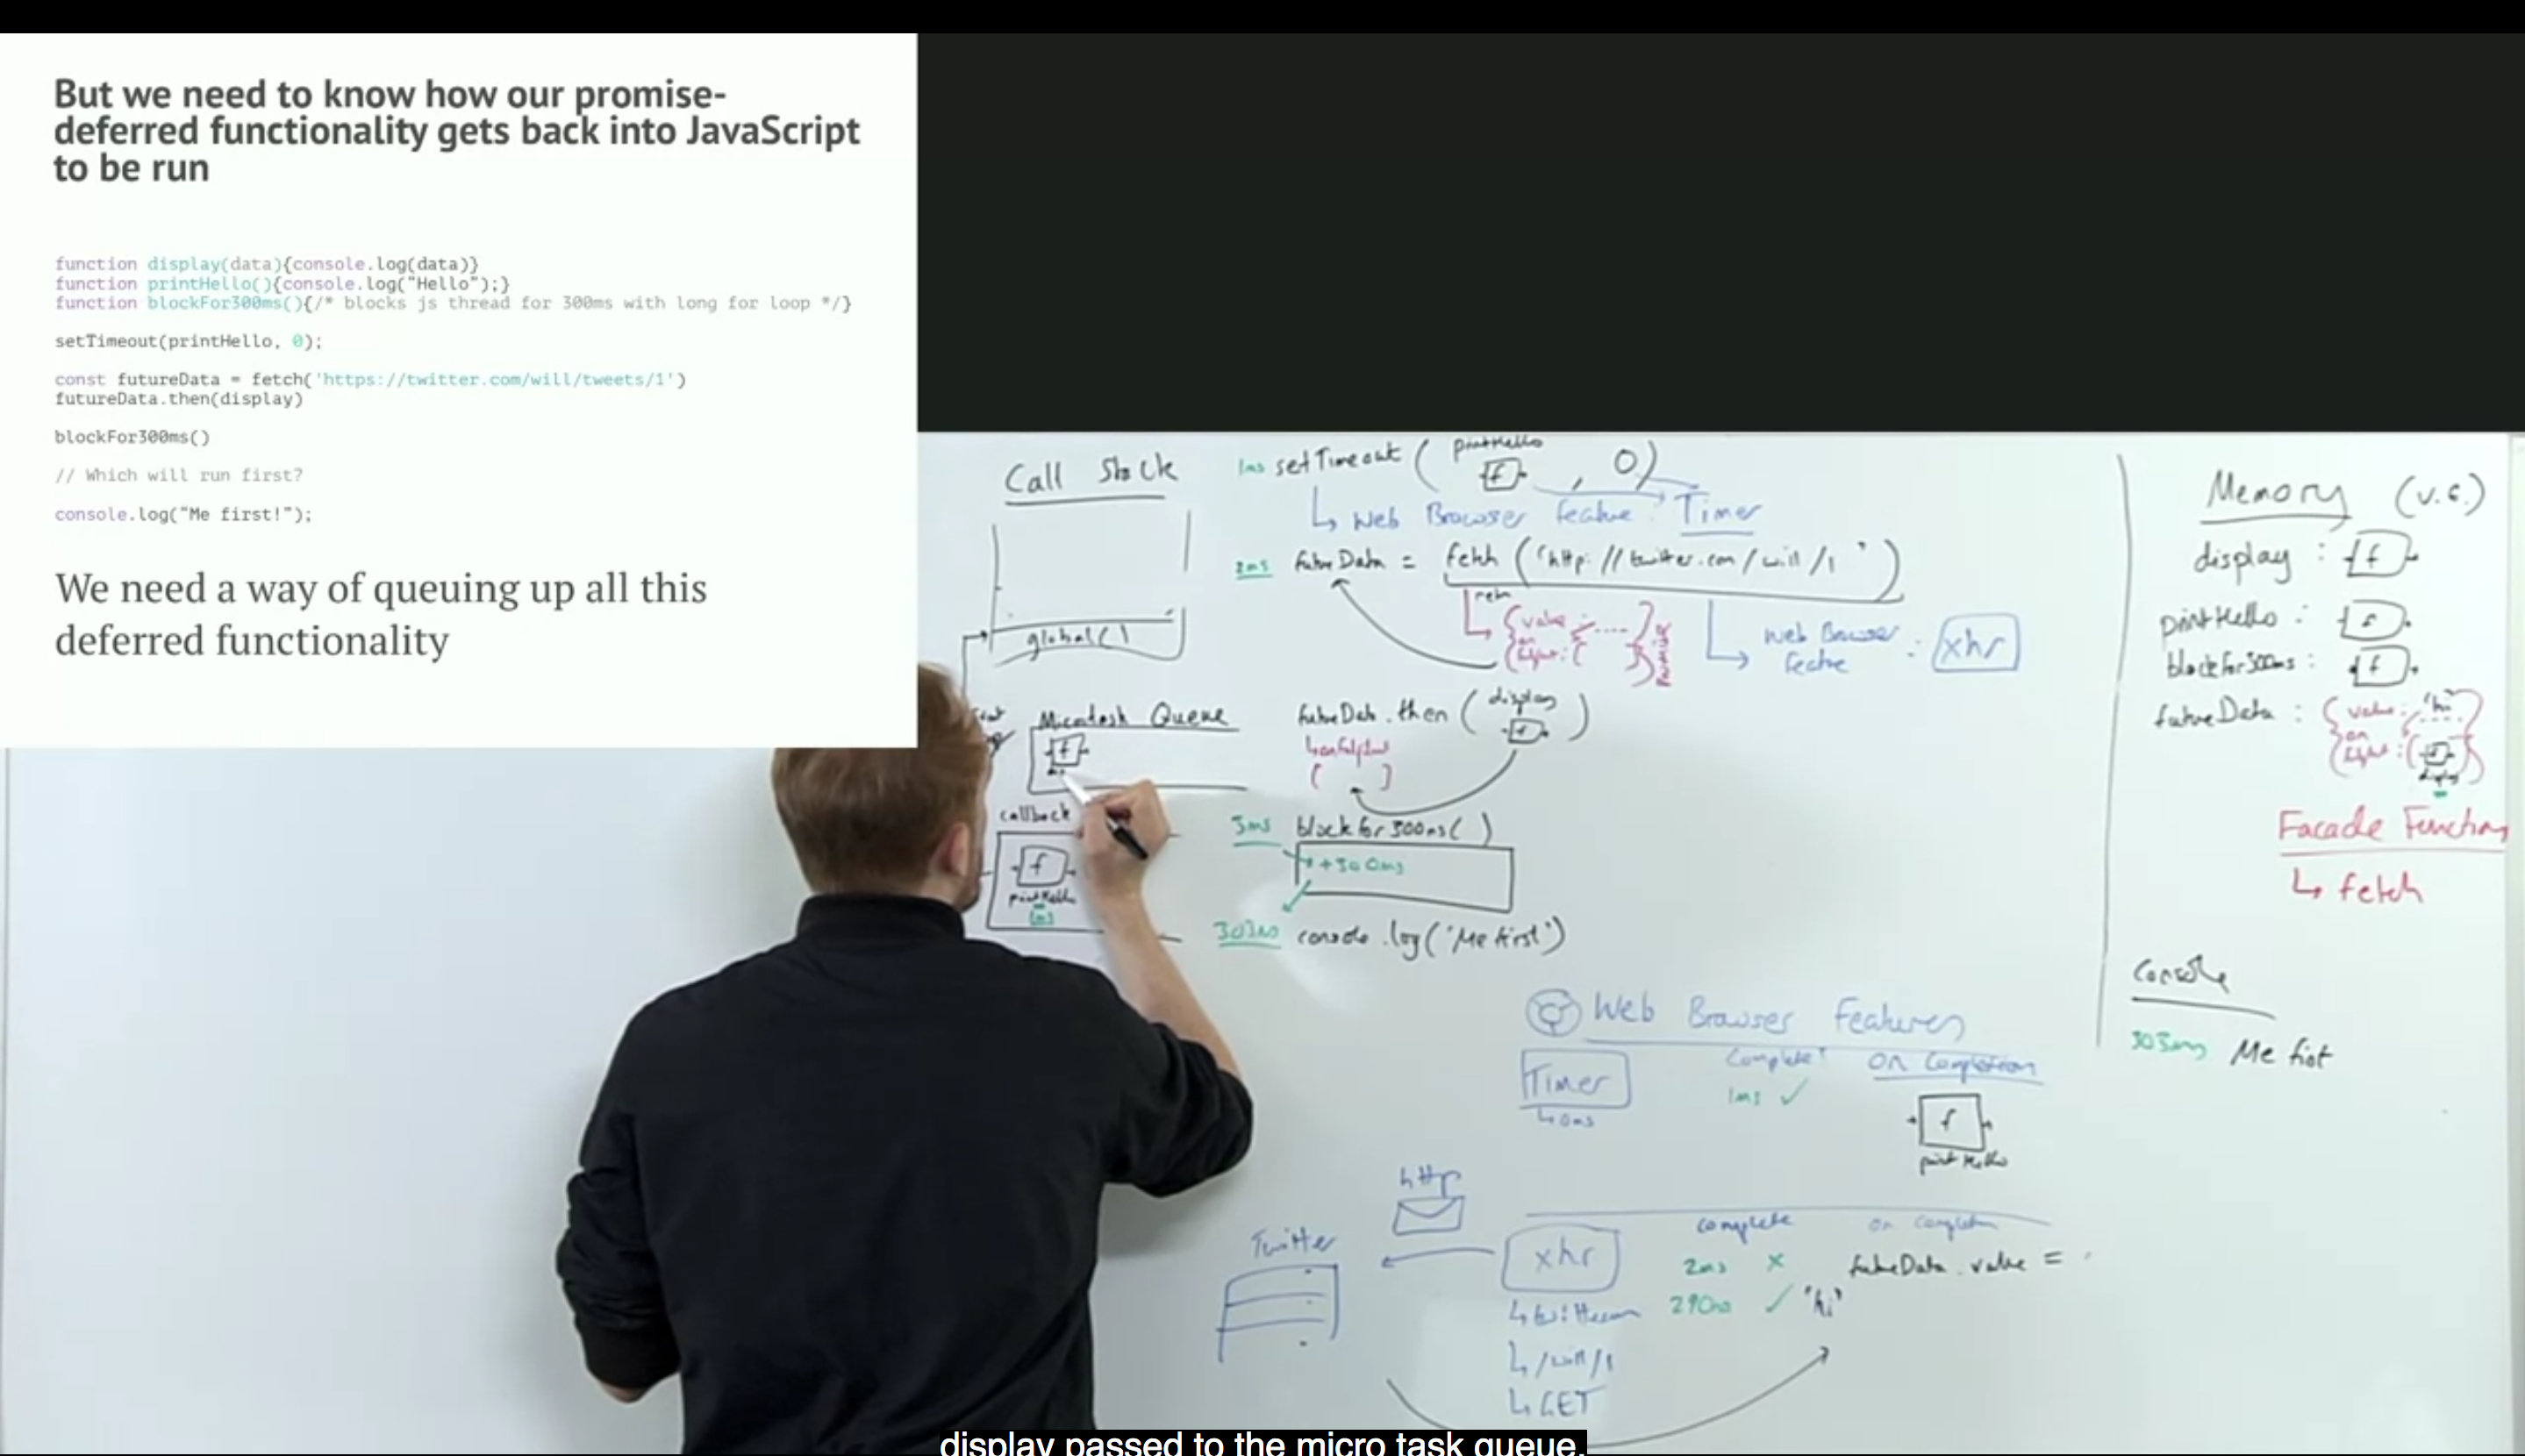 But we need to know how our promise-
deferred functionality gets back into JavaScript
to be run
function display(data){console.log(data)}
function printHello(){console.log("Hello");}
function blockFor300ms(){/* blocks js thread for 300ms with long for loop */}
setTimeout(printHello, 0);
const futureData = fetch('https://twitter.com/will/tweets/1')
futureData.then(display)
blockFor300ms()
// Which will run first?
console.log("Me first!");
We need a way of queuing up all this
deferred functionality
Call Stack
global()
Microtask Queue
f
callback
f
printHello
1ms setTimeout ( printHello f , 0)
↳ Web Browser feature : Timer
2ms futureData = fetch ('http://twitter.com/will/1')
value :
Web Browser
feature : xhr
futureData.then (display f)
3ms blockfor300ms( )
+300ms
303ms console.log('Me first')
Web Browser Features
Timer Complete? On Completion
↳ 0ms 1ms ✓ f
printHello
http
Twitter
xhr complete on completion
2ms x futureData.value =
290ms ✓ 'hi'
↳ /will/1
↳ GET
Memory (v.e.)
display : f
printHello : f
blockfor300ms : f
futureData : { value : 'hi'
display
Facade Functions
↳ fetch
Console
303ms Me first
display passed to the micro task queue.